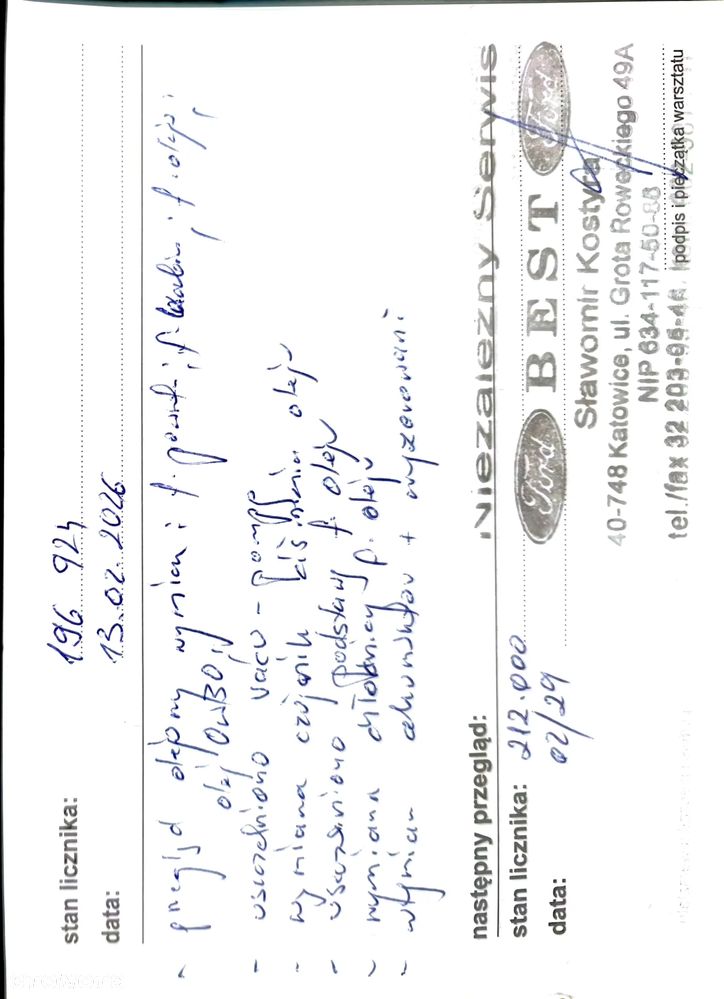 stan licznika: 196 924
data: 13.02.2026
- przegląd olejowy wymian: f. powiet; f. kabin; f. oleju;
olej 0W30;
- uszczelniono vacu-pompę
- wymiana czujnik ciśnienia oleju
- uszczelniono podstawę f. oleju
- wymiana chłodnicy p. oleju
- wymian akumulator + wyzerowani
następny przegląd:
stan licznika: 212.000
data: 02/29
Niezależny Serwis
Ford BEST Ford
Sławomir Kostyra
40-748 Katowice, ul. Grota Roweckiego 49A
NIP 634-117-50-
tel./fax 32 203-
podpis i pieczątka warsztatu